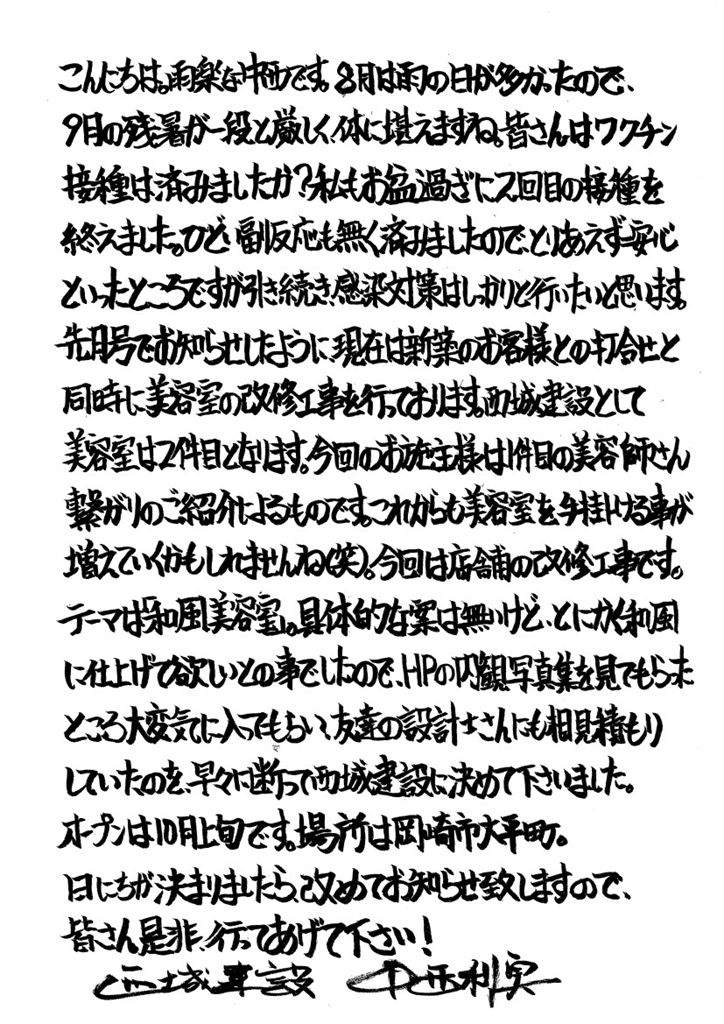 こんにちは。雨楽な中西です。8月は雨の日が多かったので、
9月の残暑が一段と厳しく、体に堪えますね。皆さんはワクチン
接種は済みましたか?私もお盆過ぎに2回目の接種を
終えました。ひどい副反応も無く済みましたので、とりあえず一安心
といったところですが引き続き、感染対策はしっかりと行いたいと思います。
先月号でお知らせしたように、現在は新築のお客様との打合せと
同時に美容室の改修工事を行っております。西城建設として
美容室は2件目となります。今回のお施主様は1件目の美容師さん
繋がりのご紹介によるものです。これからも美容室を手掛ける事が
増えていくかもしれませんね(笑)。今回は店舗の改修工事です。
テーマは「和風美容室」。具体的な案は無いけど、とにかく和風
に仕上げて欲しいとの事でしたので、HPの内観写真集を見てもらった
ところ大変気に入ってもらい、友達の設計士さんにも相見積もり
していたのを、早々に断って西城建設に決めて下さいました。
オープンは10月上旬です。場所は岡崎市大平町。
日にちが決まりましたら、改めてお知らせ致しますので、
皆さん是非、行ってあげて下さい!
西城建設 中西利実